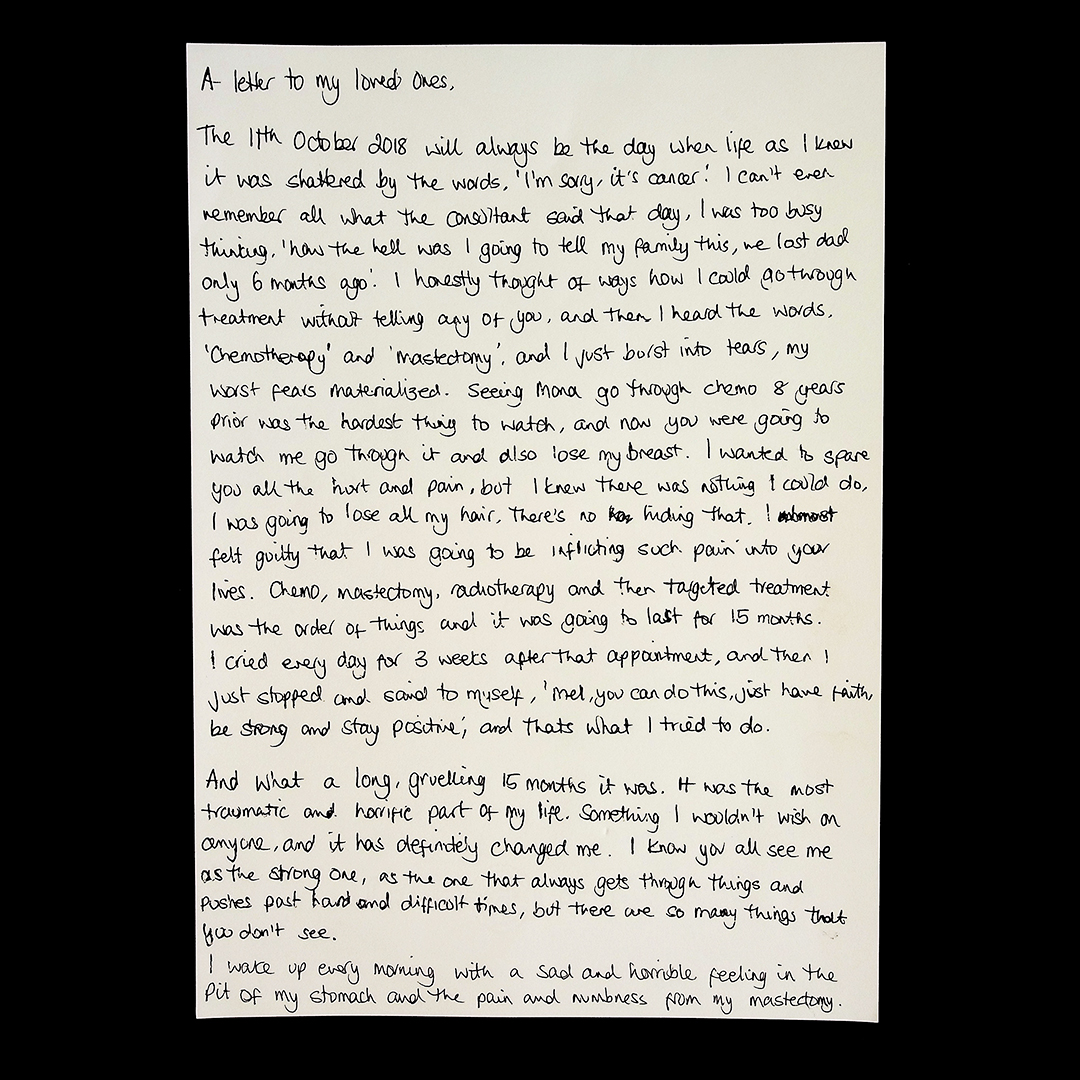 A letter to my loved ones,
The 11th October 2018 will always be the day when life as I knew
it was shattered by the words, 'I'm sorry, it's cancer'. I can't even
remember all what the consultant said that day, I was too busy
thinking, 'how the hell was I going to tell my family this, we lost dad
only 6 months ago'. I honestly thought of ways how I could go through
treatment without telling any of you, and then I heard the words,
'Chemotherapy' and 'mastectomy', and I just burst into tears, my
worst fears materialized. Seeing Mona go through chemo 8 years
prior was the hardest thing to watch, and now you were going to
watch me go through it and also lose my breast. I wanted to spare
you all the hurt and pain, but I knew there was nothing I could do,
I was going to lose all my hair, there's no hiding that. I
felt guilty that I was going to be inflicting such pain into your
lives. Chemo, mastectomy, radiotherapy and then targeted treatment
was the order of things and it was going to last for 15 months.
I cried every day for 3 weeks after that appointment, and then I
just stopped and said to myself, 'Mel, you can do this, just have faith,
be strong and stay positive', and thats what I tried to do.
And what a long, gruelling 15 months it was. It was the most
traumatic and horrific part of my life. Something I wouldn't wish on
anyone, and it has definitely changed me. I know you all see me
as the strong one, as the one that always gets through things and
pushes past hard and difficult times, but there are so many things that
you don't see.
I wake up every morning with a sad and horrible feeling in the
pit of my stomach and the pain and numbness from my mastectomy.